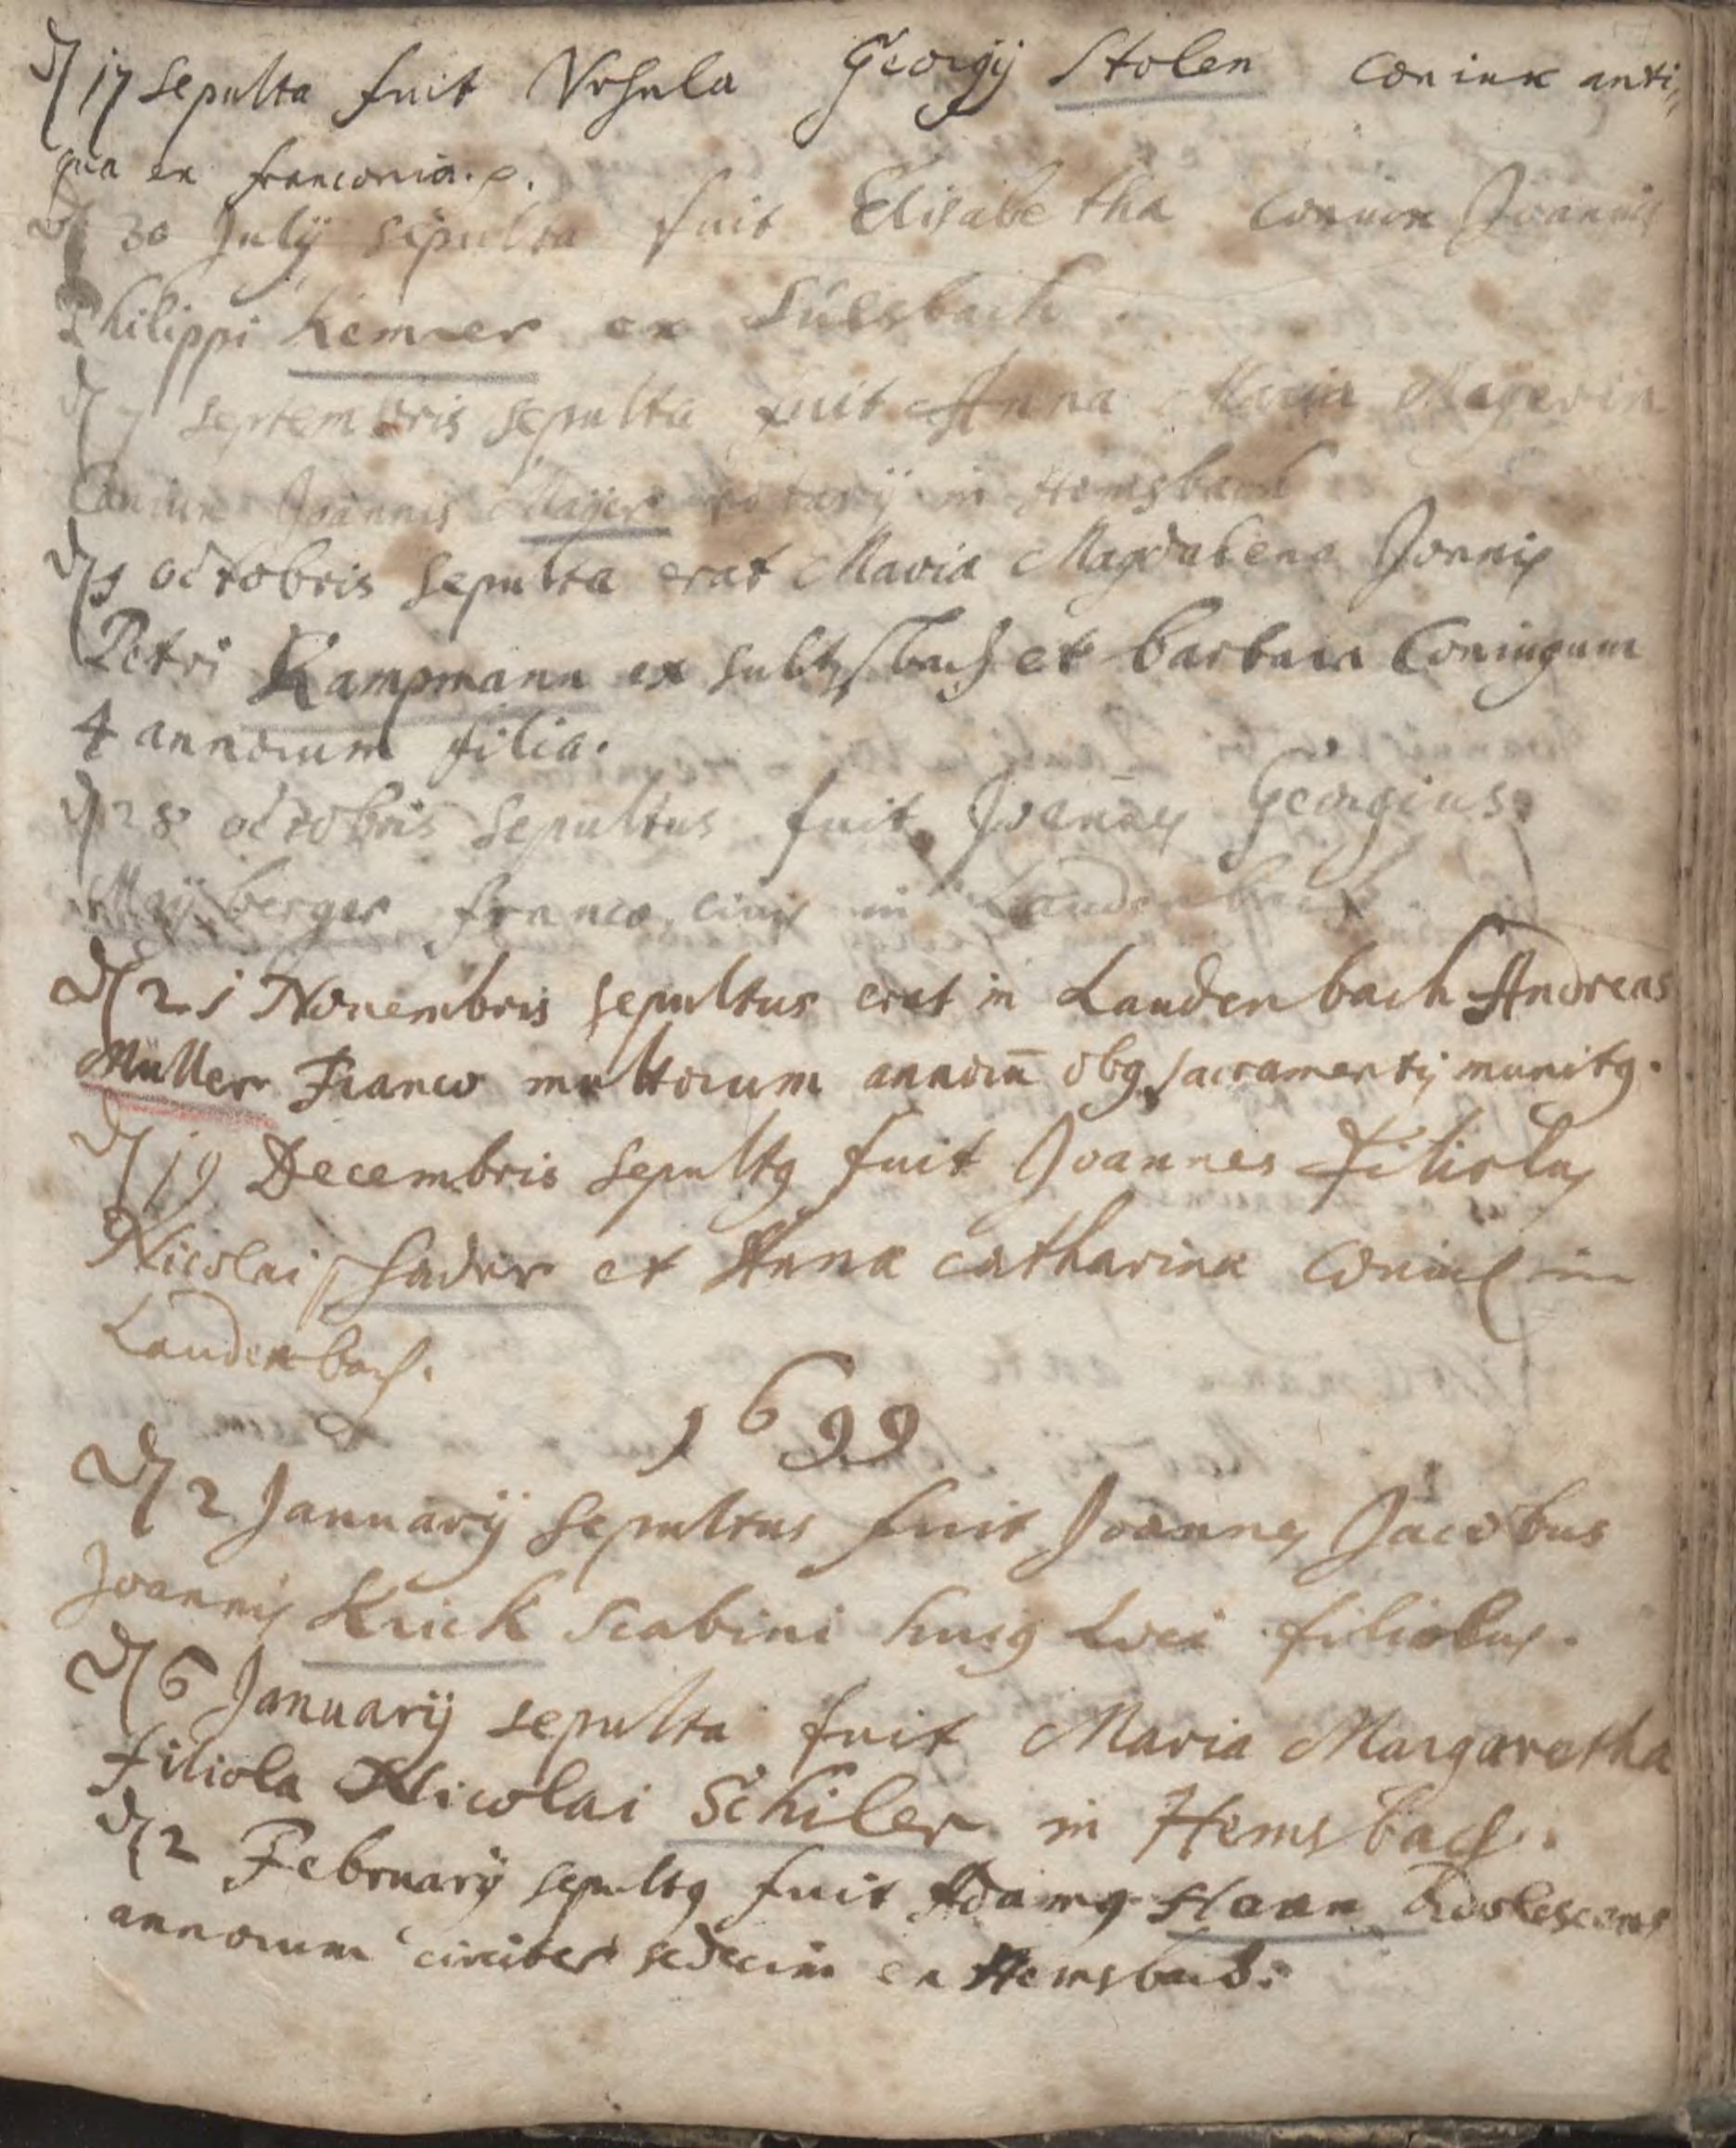 D 17 sepulta fuit Vrsula Georgij Stolen coniux anti,,
qua ex franconia. p.
D 30 Julij sepulta fuit Elisabetha coniux Joannis
Philippi Kemrer ex Sulsbach.
D 7 septembris sepulta fuit Anna Maria Mayerin
Coniux Joannis Mayer in Hemsbach
D 9 octobris sepulta erat Maria Magdalena Joannis
Petri Kampmann ex sultzbach et barbara Coniugum
4 annorum filia.
D 28 octobris sepultus fuit Joannes Georgius
Maÿberger franco, civis in Laudenbach.
D 21 Novembris sepultus erat in Laudenbach Andreas
Muller Franco multorum annorū obq sacramentis munitq.
D 19 Decembris sepultq fuit Joannes Filiolus
Nicolai Schader et Anna Catharina coniu in
Laudenbach.
1699
D 2 Januarij sepultus fuit Joannes Jacobus
Joannis Krick scabini huiq loci filiolus.
D 6 Januarij sepulta fuit Maria Margaretha
Filiola Nicolai Schiler in Hemsbach.
D 2 Februarij sepultq fuit Adamq Hann adolescens
annorum circiter sedecim ex Hemsbach.